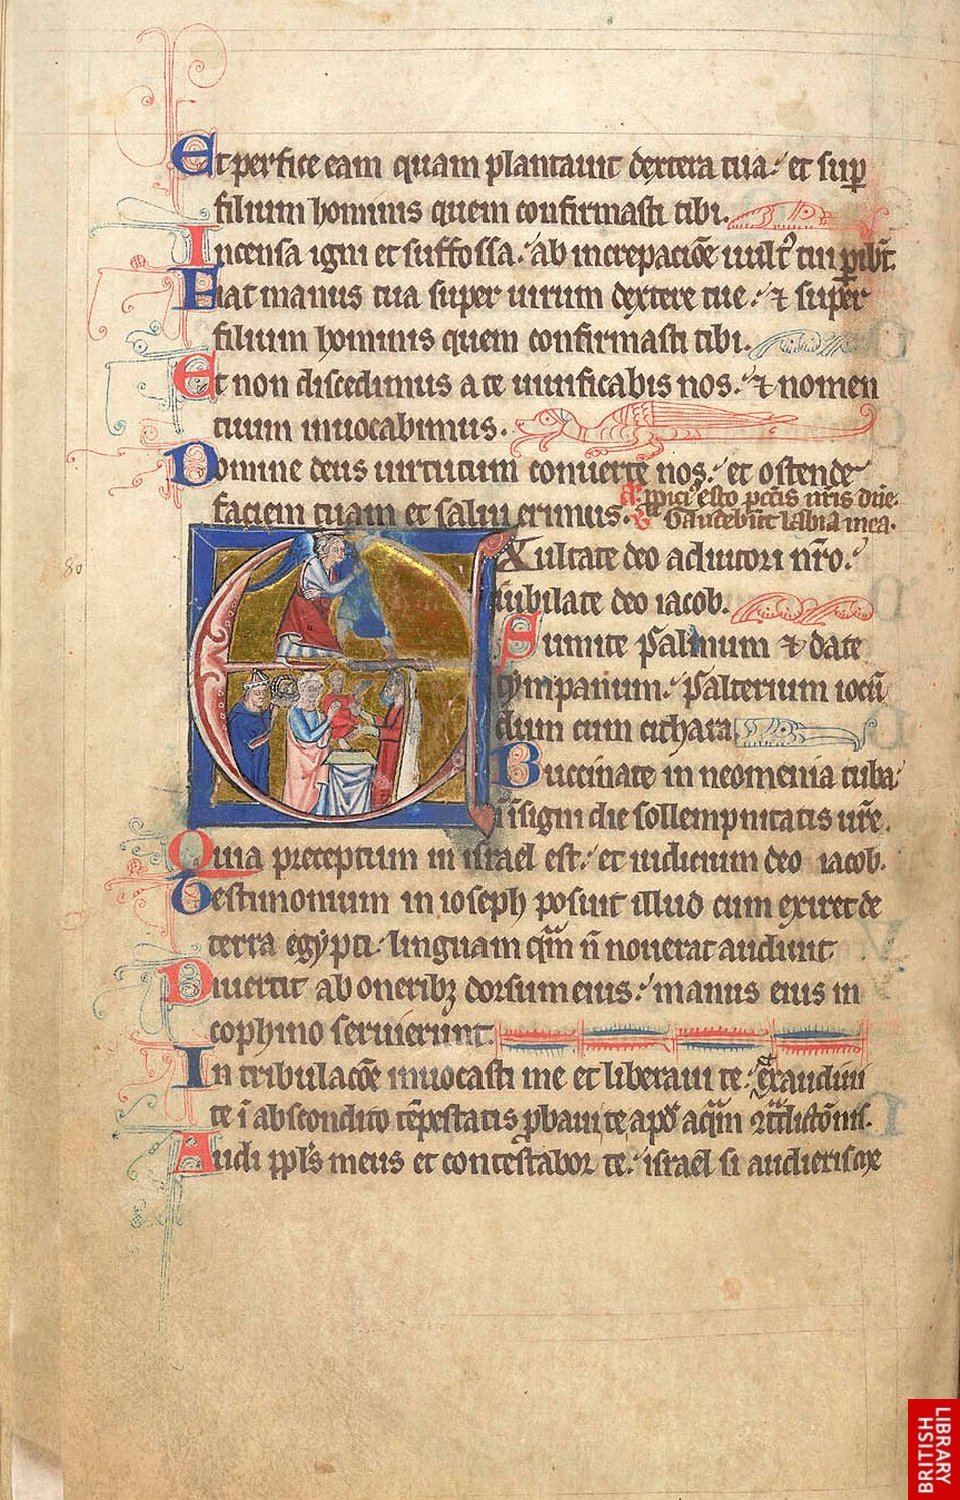 Et perfice eam quam plantauit dextera tua. et sup
filium hominis quem confirmasti tibi.
Incensa igni et suffossa. ab increpacōe uult᾿ tui ꝑibūt.
Fiat manus tua super uirum dextere tue. ⁊ super
filium hominis quem confirmasti tibi.
Et non discedimus a te uiuificabis nos. ⁊ nomen
tuum inuocabimus.
Domine deus uirtutum conuerte nos. et ostende
faciem tuam et salui erimus.
A. ꝓpici᾿ esto pctīs nr̄is dn̄e.
Gaudebūt labia mea.
80
EXultate deo adiutori nr̄o.
iubilate deo iacob.
Sumite psalmum ⁊ date
tympanum. psalterium iocū
dum cum cithara
Buccinate in neomenia tuba.
in īsigni die sollempnitatis ur̄e.
Quia preceptum in israel est. et iudicium deo iacob.
Testimonium in ioseph posuit illud cum exiret de
terra egypti. linguam quā n̄ nouerat audiuit
Diuertit ab oneribꝫ dorsum eius. manus eius in
cophino seruierunt.
In tribulacōe inuocasti me et liberaui te. exaudiui
te ī abscondito tēpestatis ꝓbaui te apđ aquā ꝯtdictōnis.
Audi ppl̄s meus et contestabor te. israel si audieris me
BRITISH
LIBRARY